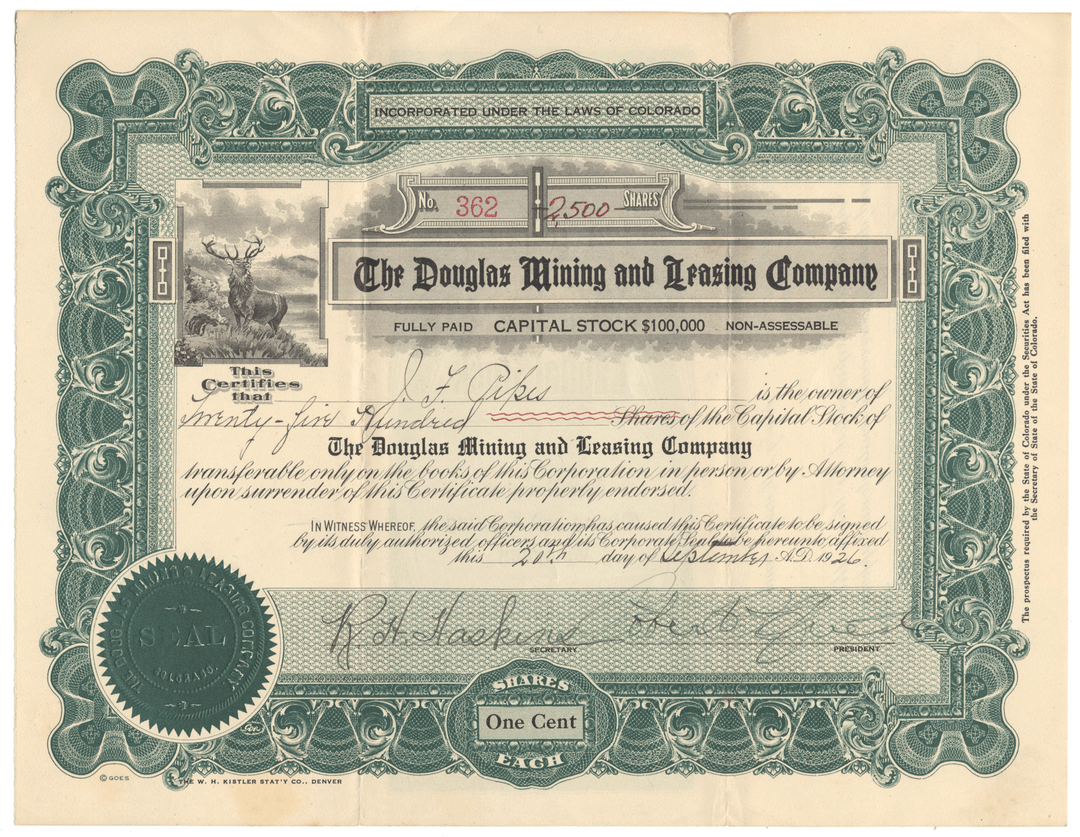 INCORPORATED UNDER THE LAWS OF COLORADO
No. 362 2,500 SHARES
The Douglas Mining and Leasing Company
FULLY PAID CAPITAL STOCK $100,000 NON-ASSESSABLE
This
Certifies
that
J. F. Pikes is the owner of
Twenty-five Hundred Shares of the Capital Stock of
The Douglas Mining and Leasing Company
transferable only on the books of this Corporation in person or by Attorney
upon surrender of this Certificate properly endorsed.
IN WITNESS WHEREOF, the said Corporation has caused this Certificate to be signed
by its duly authorized officers and its Corporate Seal to be hereunto affixed
this 20th day of September A.D. 1926.
R. H. Haskins
SECRETARY
PRESIDENT
THE DOUGLAS MINING & LEASING COMPANY
SEAL
COLORADO.
SHARES
One Cent
EACH
© GOES
THE W. H. KISTLER STAT'Y CO., DENVER
The prospectus required by the State of Colorado under the Securities Act has been filed with
the Secretary of State of the State of Colorado.